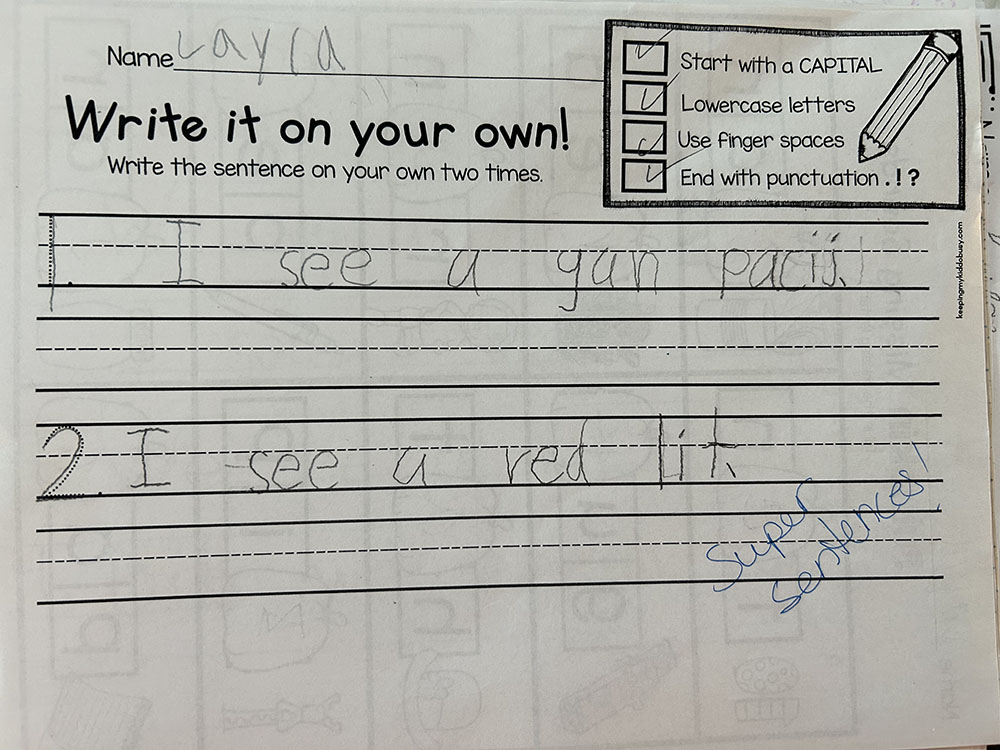 Name Layla
Start with a CAPITAL
Lowercase letters
Use finger spaces
End with punctuation . ! ?
Write it on your own!
Write the sentence on your own two times.
keepingmykiddobusy.com
1. I see a yan
2. I see a red lit.
Super
sentences!